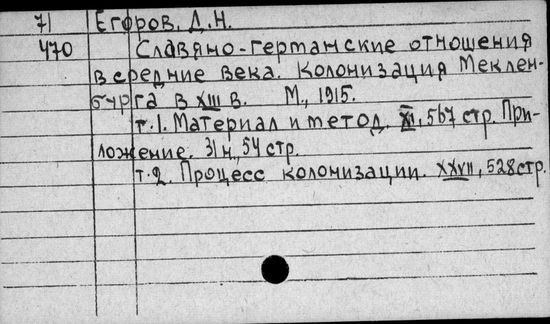 71 Егоров, Д.Н.
470 Славяно-германские отношения
в средние века. Колонизация Меклен-
бурга в XIII в. М., 1915.
т.1. Материал и метод. XI, 567 стр. При-
ложение. 31 н., 54 стр.
т.2. Процесс колонизации. XXVII, 528 стр.